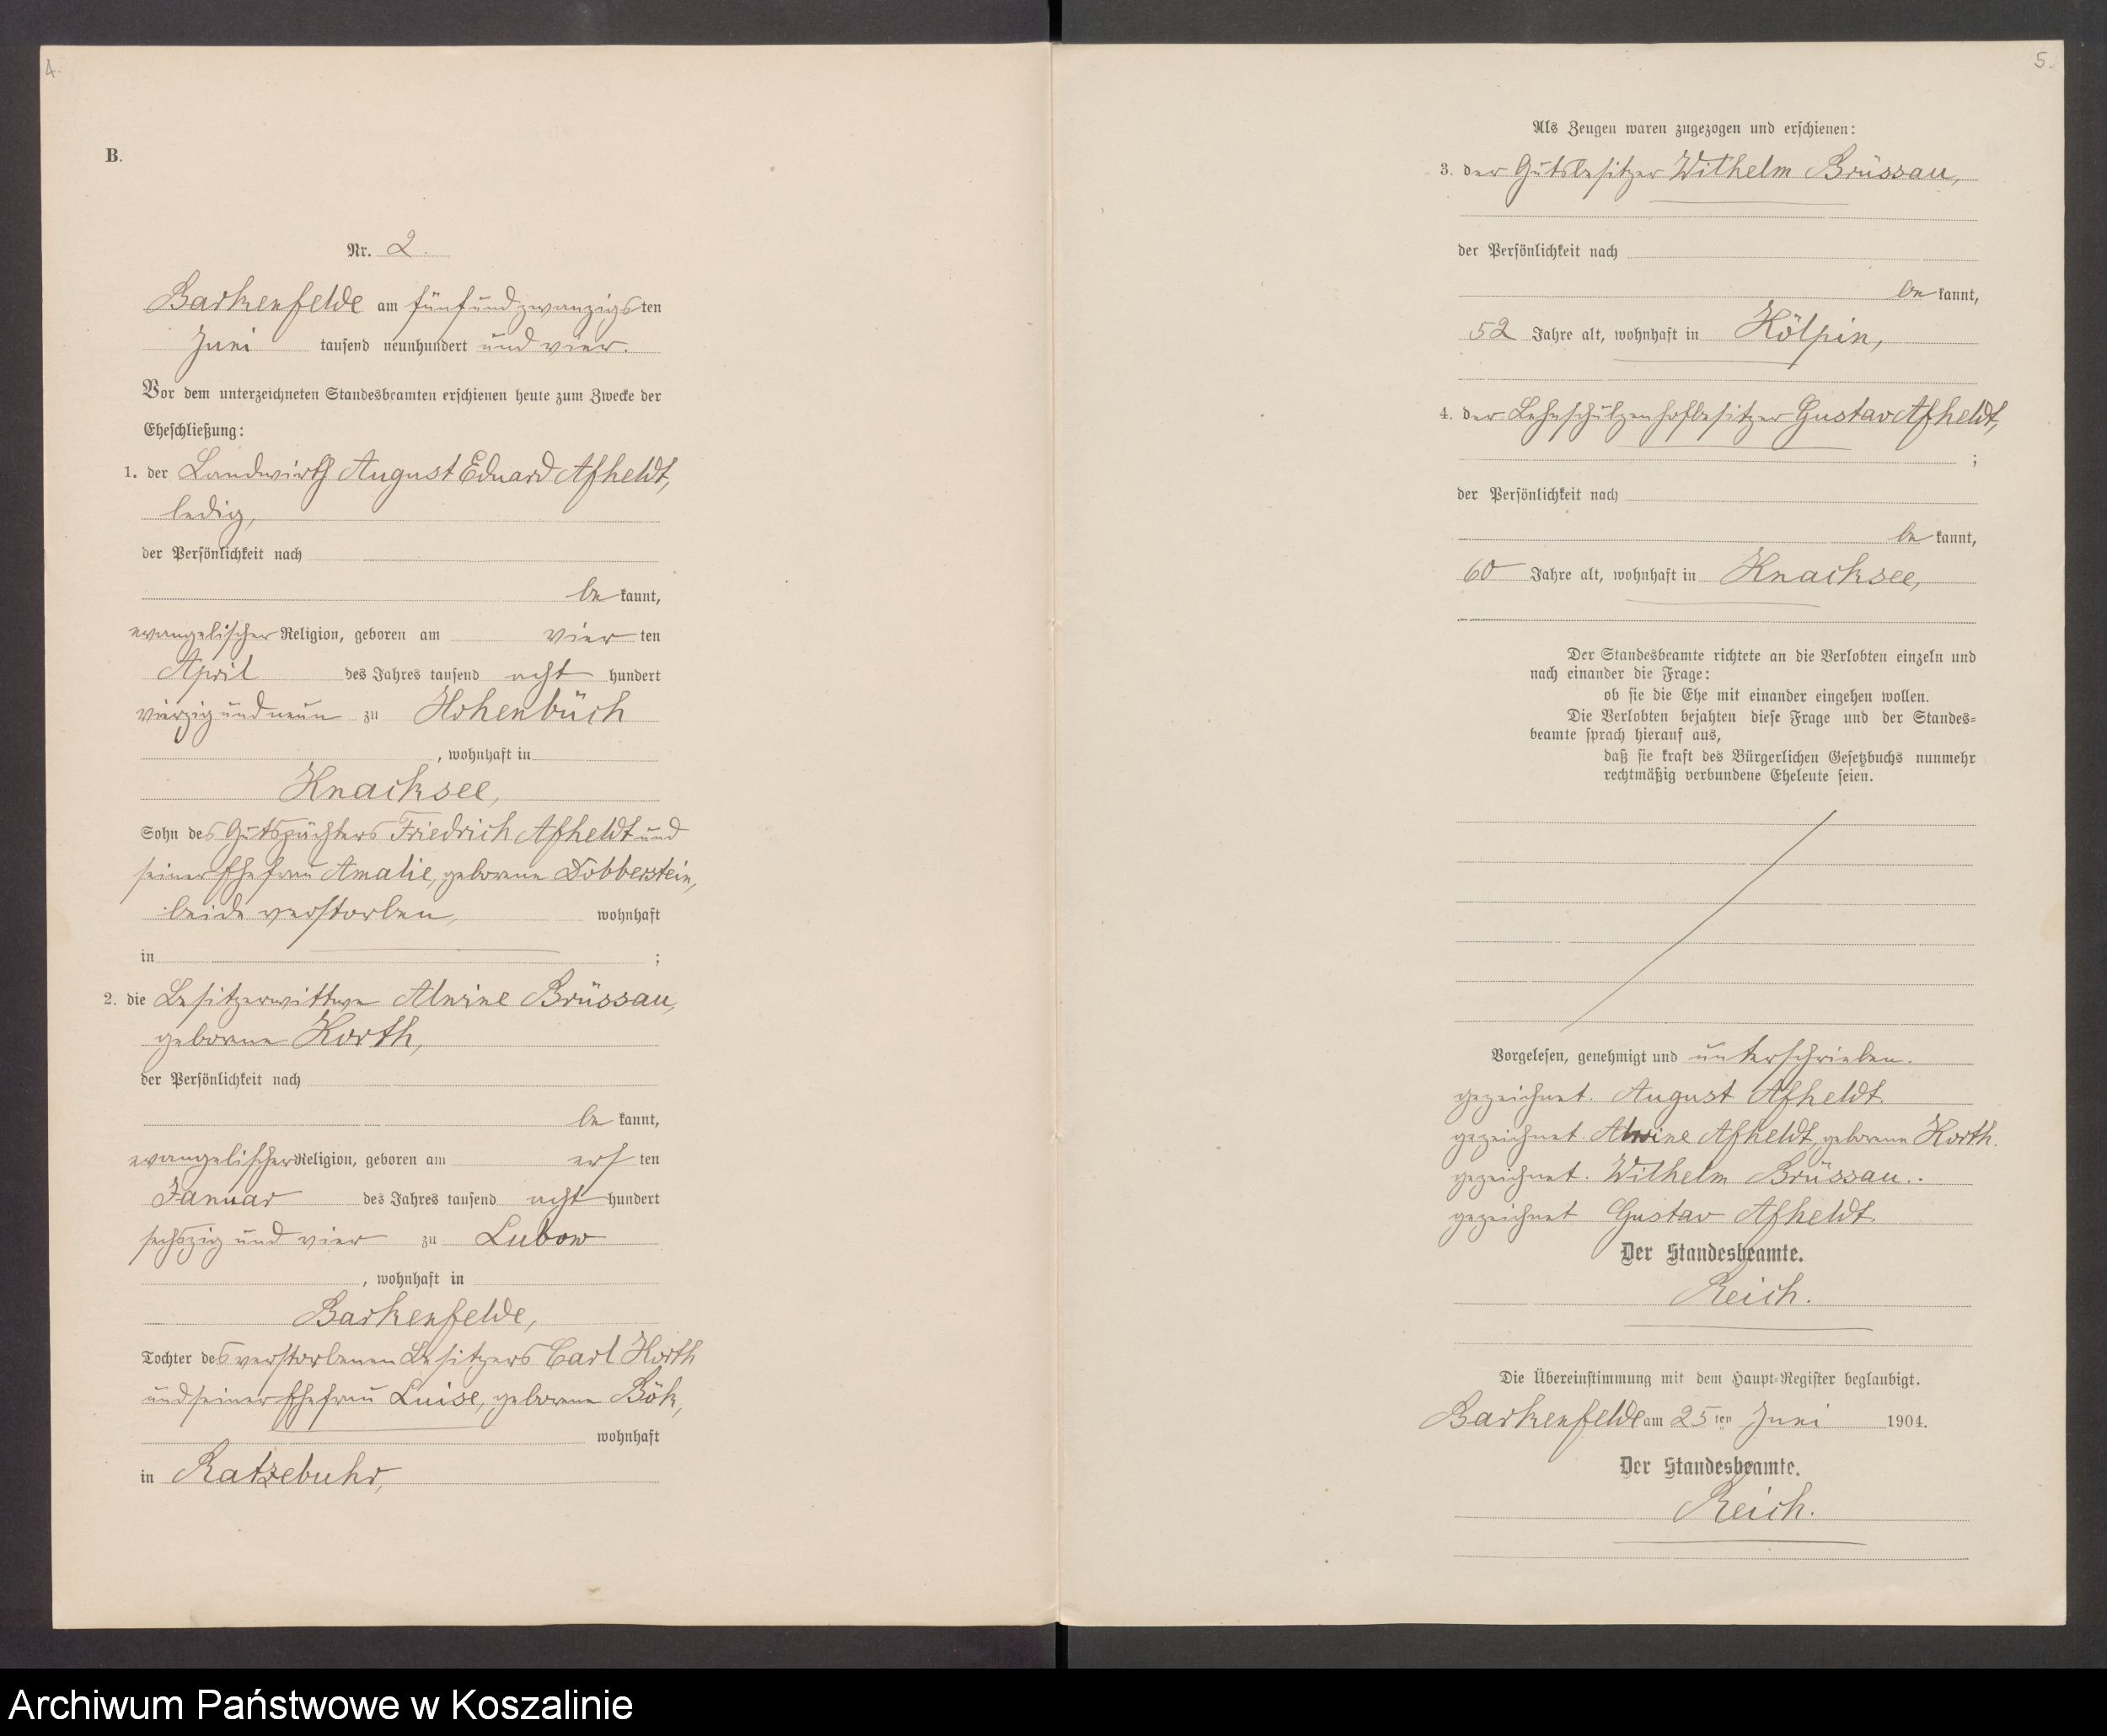 4.
B.
Nr. 2.
Barkenfelde am fünfundzwanzigsten
Juni tausend neunhundert und vier.
Vor dem unterzeichneten Standesbeamten erschienen heute zum Zwecke der
Eheschließung:
1. der Landwirth August Eduard Afheldt,
ledig,
der Persönlichkeit nach
be kannt,
evangelischer Religion, geboren am vier ten
April des Jahres tausend acht hundert
vierzig und neun zu Hohenbüch
, wohnhaft in
Knacksee,
Sohn des Gutspächters Friedrich Afheldt und
seiner Ehefrau Amalie, geborene Dobberstein,
beide verstorben, wohnhaft
in ;
2. die Besitzerwittwe Alwine Brüssau,
geborne Korth,
der Persönlichkeit nach
be kannt,
evangelischer Religion, geboren am ers ten
Januar des Jahres tausend acht hundert
sechszig und vier zu Lubow
, wohnhaft in
Barkenfelde,
Tochter des verstorbenen Besitzers Carl Korth
und seiner Ehefrau Luise, geborene Bök,
wohnhaft
in Ratzebuhr,
5.
Als Zeugen waren zugezogen und erschienen:
3. der Gutsbesitzer Wilhelm Brüssau,
der Persönlichkeit nach
be kannt,
52 Jahre alt, wohnhaft in Kölpin,
4. der Lehnschulzenhofbesitzer Gustav Afheldt,
;
der Persönlichkeit nach
be kannt,
60 Jahre alt, wohnhaft in Knacksee,
Der Standesbeamte richtete an die Verlobten einzeln und
nach einander die Frage:
ob sie die Ehe mit einander eingehen wollen.
Die Verlobten bejahten diese Frage und der Standes=
beamte sprach hierauf aus,
daß sie kraft des Bürgerlichen Gesetzbuchs nunmehr
rechtmäßig verbundene Eheleute seien.
Vorgelesen, genehmigt und unterschrieben.
gezeichnet. August Afheldt.
gezeichnet. Alwine Afheldt, geborene Korth.
gezeichnet. Wilhelm Brüssau.
gezeichnet Gustav Afheldt.
Der Standesbeamte.
Reich.
Die Übereinstimmung mit dem Haupt=Register beglaubigt.
Barkenfelde am 25ten Juni 1904.
Der Standesbeamte.
Reich.
Archiwum Państwowe w Koszalinie